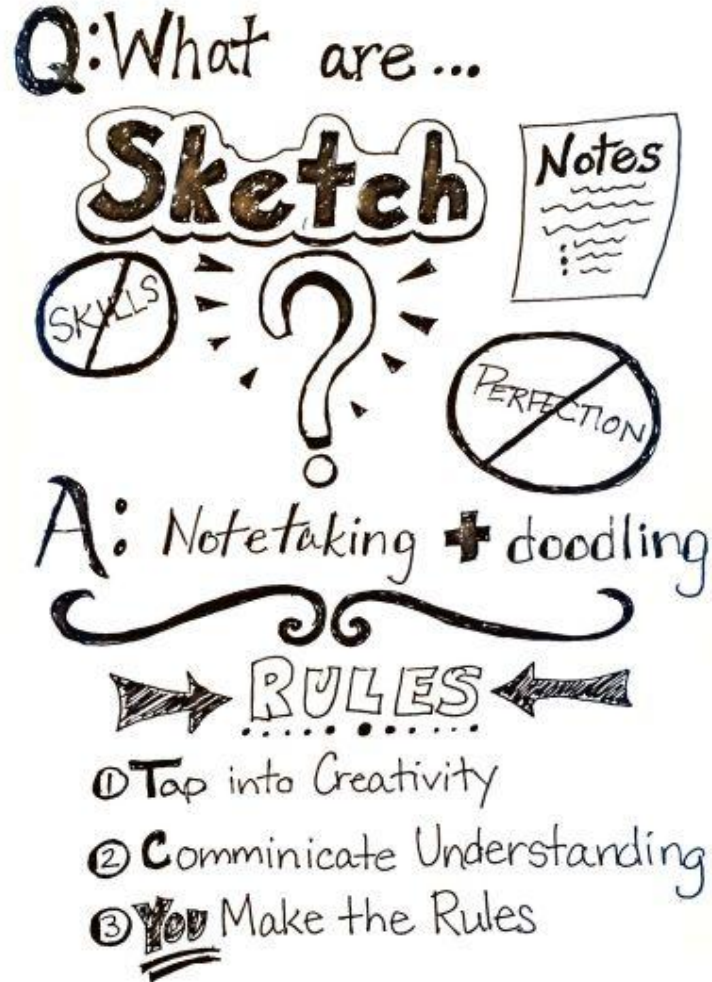 Q: What are...
Sketch
Notes
SKILLS
?
PERFECTION
A: Notetaking + doodling
RULES
① Tap into Creativity
② Comminicate Understanding
③ You Make the Rules